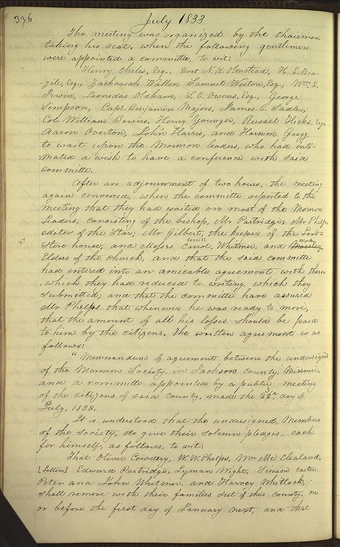 336
July 1833
The meeting was organized by the chairman
taking his seat, when the following gentlemen
were appointed a committe, to wit:
Henry Chiles, Esq., Doct. N. K. Olmstead, H. L. Bra-
zile, Esq., Zachariah Waller, Samuel Weston, Esq., Wm. L.
Irwin, Leonidas Oldham, S. C. Owens, Esq., George
Simpson, Capt. Benjamin Majors, James C. Sadler,
Col. William Bowers, Henry Younger, Russel Hicks, Esq.
Aaron Overton, John Harris, and Harmon Gregg
to wait upon the Mormon leaders, who had inti-
mated a wish to have a conference with said
committe.
After an adjournment of two hours, the meeting
again convened, when the committe reported to the
meeting that they had waited on most of the Mormon
leaders, consisting of the bishop, Mr. Partridge, Mr. Phelps
editor of the Star, Mr. Gilbert, the keeper of the Lord's
Store house, and Messrs. Carrol, Whitmer, and
Corrill
Elders of the Church, and that the said committe
had entered into an amicable agreement with them
which they had reduced to writing, which they
submitted; and that the committe have assured
Mr. Phelps that whenever he was ready to move,
that the amount of all his losses should be paid
to him by the citizens. The written agreement is as
follows:
"Memorandum of agreement between the undersigned
of the Mormon Society, in Jackson County, Missouri,
and a committe appointed by a public meeting
of the citizens of said county, made the day of
July, 1833.
It is understood that the undersigned, members
of the society, do give their solemn pledges, each
for himself, as follows, to wit:
That Oliver Cowdery, W. W. Phelps, Wm. Mc Clealand,
Edward Partridge, Lyman Wight, Simeon Carter
Peter and John Whitmer, and Harvey Whitlock
shall remove with their families out of this county on
or before the first day of January next, and that